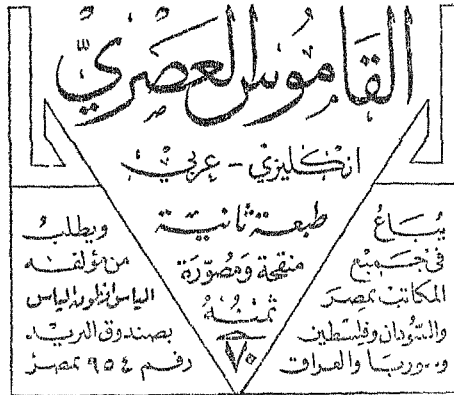 القاموس العصري
انكليزي - عربي
طبعة ثانية
منقحة ومصورة
ثمنه
٧٠
يباع
في جميع
المكاتب بمصر
والسودان وفلسطين
وسوريا والعراق
ويطلب
من مؤلفه
الياس انطون الياس
بصندوق البريد
رقم ٩٥٤ بمصر